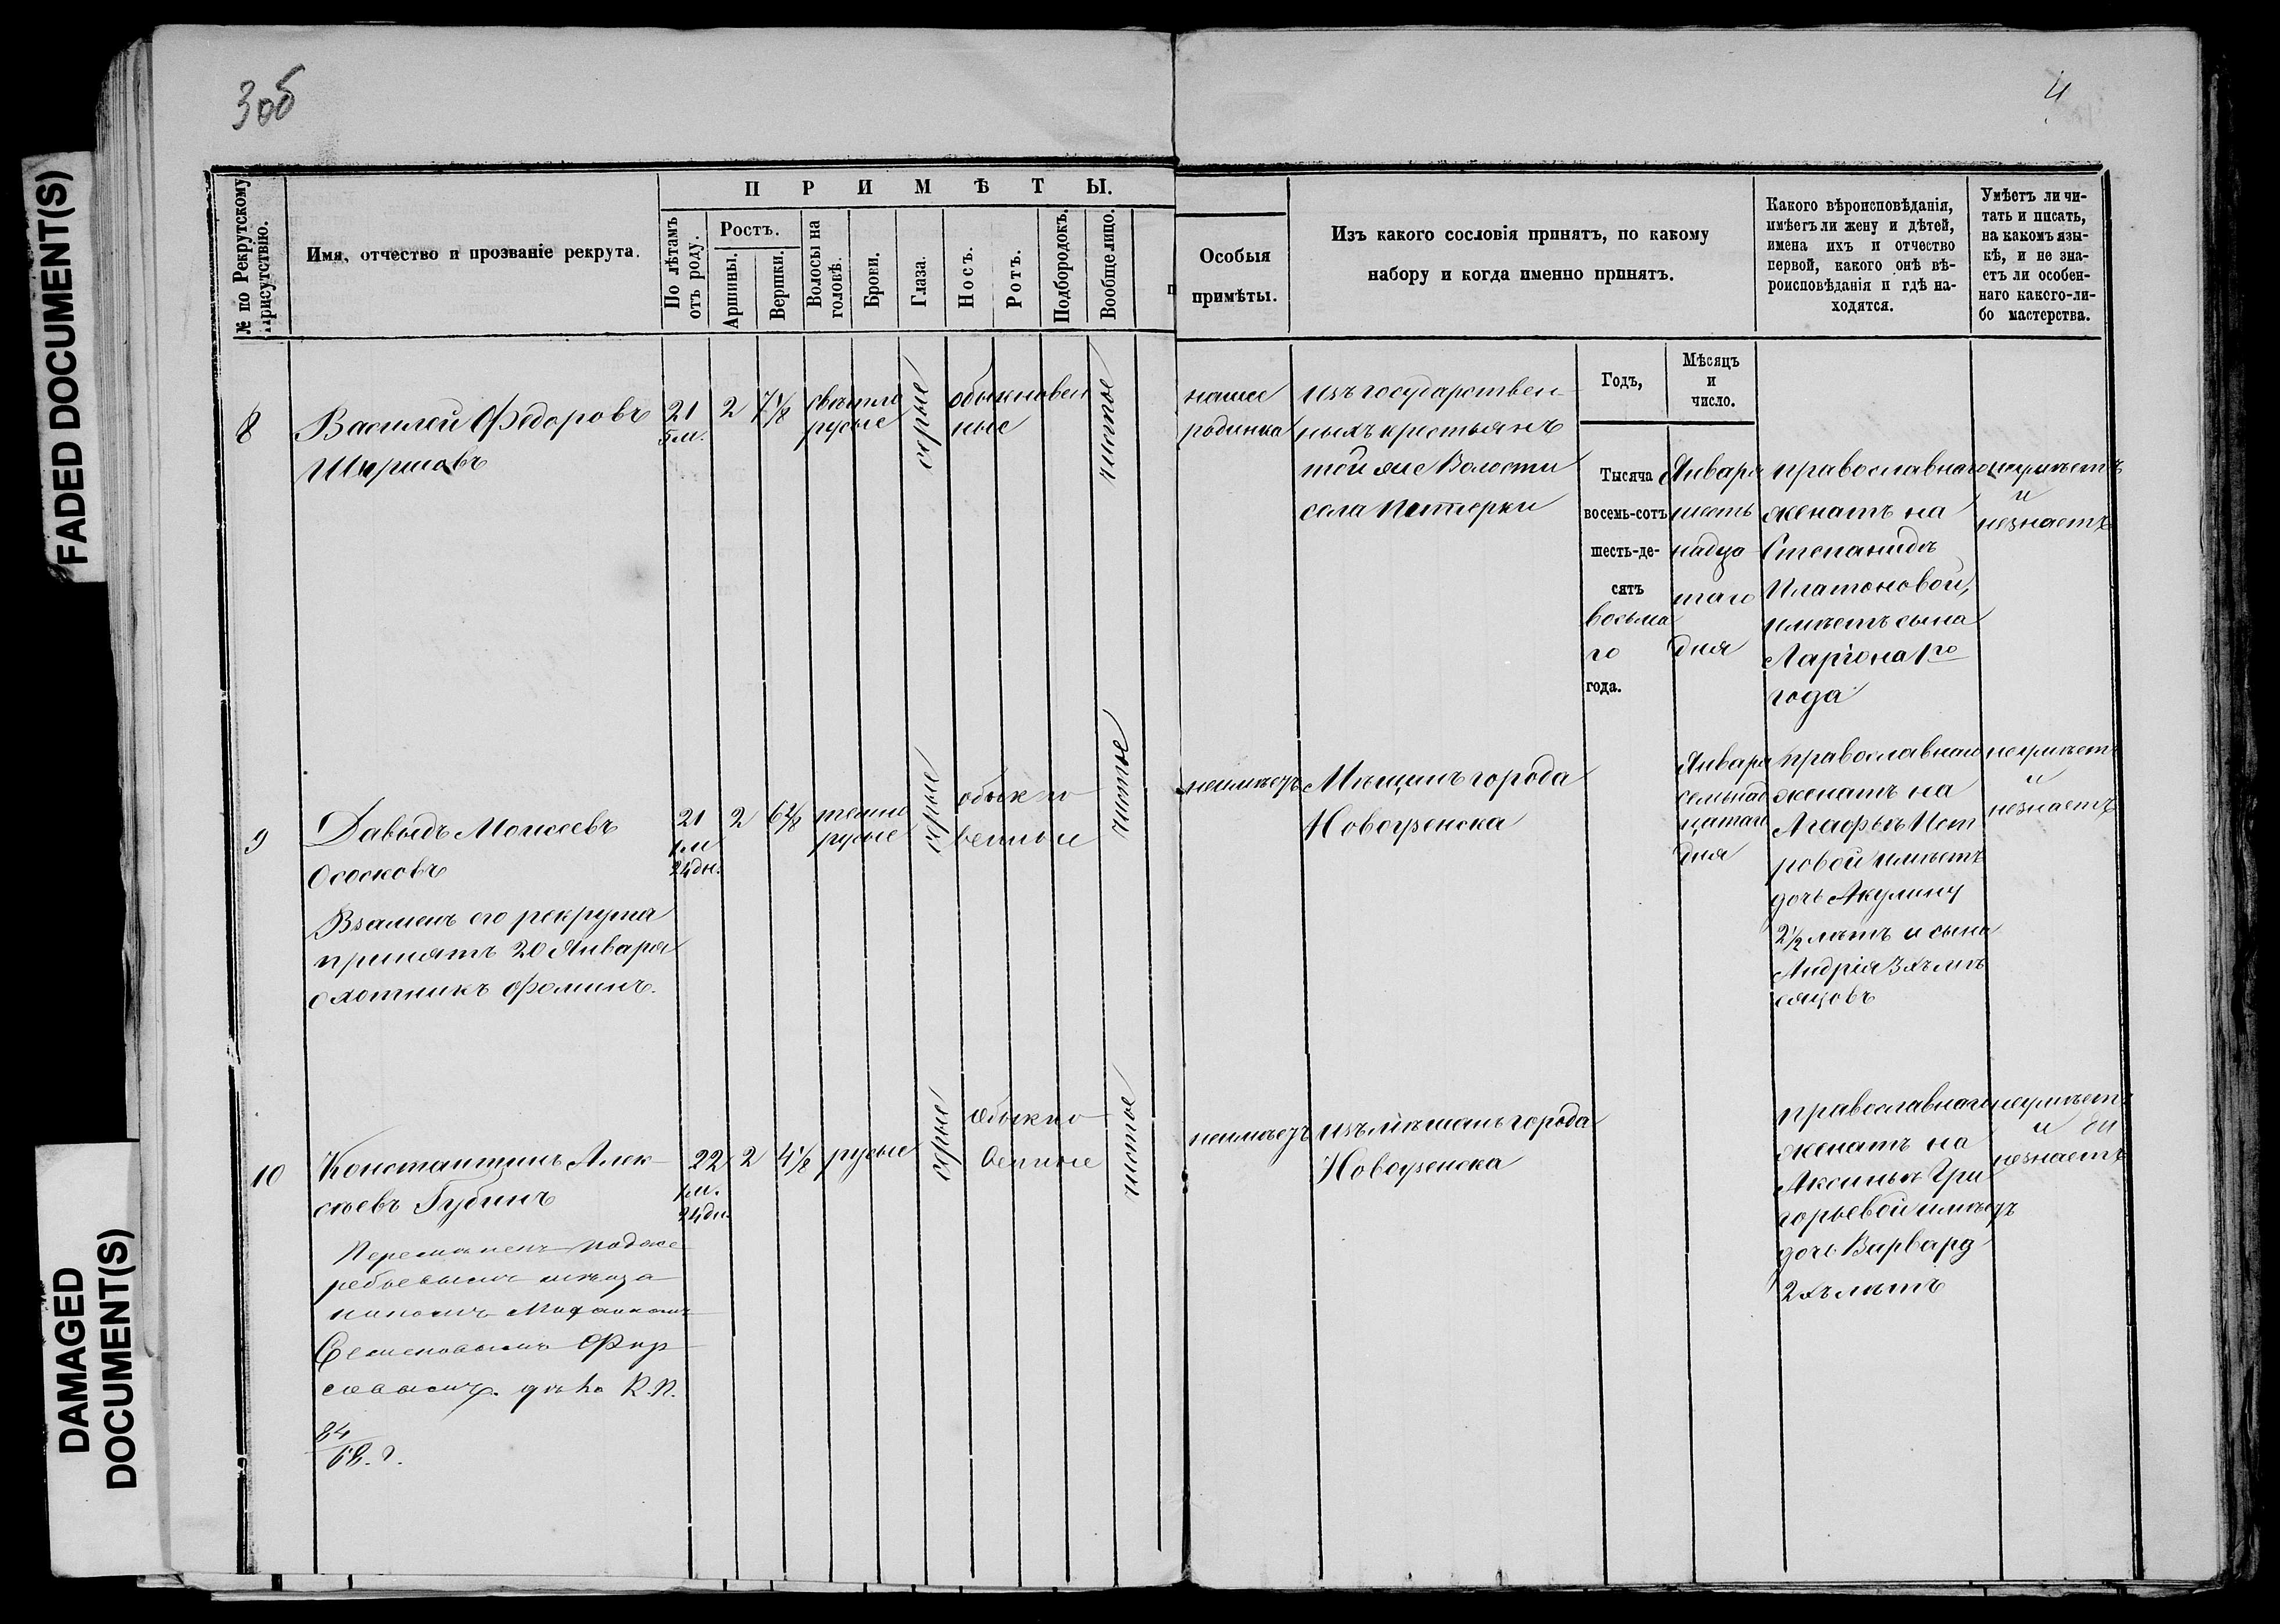 3 об
4
FADED DOCUMENT(S)
DAMAGED
DOCUMENT(S)
№ по Рекрутскому
Присутствію.
Имя, отчество и прозваніе рекрута.
ПРИМѢТЫ.
По лѣтамъ
отъ роду.
Ростъ.
Аршины.
Вершки.
Волосы на
головѣ.
Брови.
Глаза.
Носъ.
Ротъ.
Подбородокъ.
Вообще лицо.
Особыя
примѣты.
Изъ какого сословія принятъ, по какому
набору и когда именно принятъ.
Какого вѣроисповѣданія,
имѣетъ ли жену и дѣтей,
имена ихъ и отчество
первой, какого онѣ вѣ-
роисповѣданія и гдѣ на-
ходятся.
Умѣетъ ли чи-
тать и писать,
на какомъ язы-
кѣ, и не зна-
етъ ли особен-
наго какого-ли-
бо мастерства.
Годъ,
Мѣсяцъ
и
число.
8
Василей Федоровъ
21
5 м.
2
7 1/8
свѣтло
русые
серые
обыкновен
ные
чистое
родинка
изъ государствен-
ныхъ крестьянъ
той же Волости
села Питерки
Тысяча
восемь-сотъ
шесть-де-
сятъ
восьма
го
года.
Января
шест
надца
таго
дня
православнаго
женатъ на
Степанидѣ
Платоновой,
имѣетъ сына
Ларіона 1го
года
неумѣетъ
и
незнаетъ
9
Давыдъ Моисеевъ
Ососковъ
Взаменъ его рекрута
принятъ 20 Января
охотникъ Фоминъ.
21
1 м
24 дн.
2
6 2/8
темно
русые
серые
обыкно
венные
чистое
неимѣетъ
Мѣщанъ города
Новоузенска
Января
семнад
цатаго
дня
православнаго
женатъ на
Агафьѣ Пет
ровой имѣетъ
дочь Акулину
2 1/2 лѣтъ и сына
Андрія 3хъ мѣ
сяцовъ
неумѣетъ
и
незнаетъ
10
Константинъ Алек-
сѣевъ Губинъ
Перемѣненъ подже-
ребьевымъ мѣща-
ниномъ Михаиломъ
Семеновымъ Фир-
совымъ. дѣло Р.П.
84
68. г.
22
1 м.
24 дн.
2
4 1/8
русые
серые
обыкно-
венные
чистое
неимѣетъ
изъ мѣщанъ города
Новоузенска
православнаго
женатъ на
Аксиньѣ Гри
горьевой имѣетъ
дочь Варвару
2хъ лѣтъ
неумѣетъ
и
незнаетъ